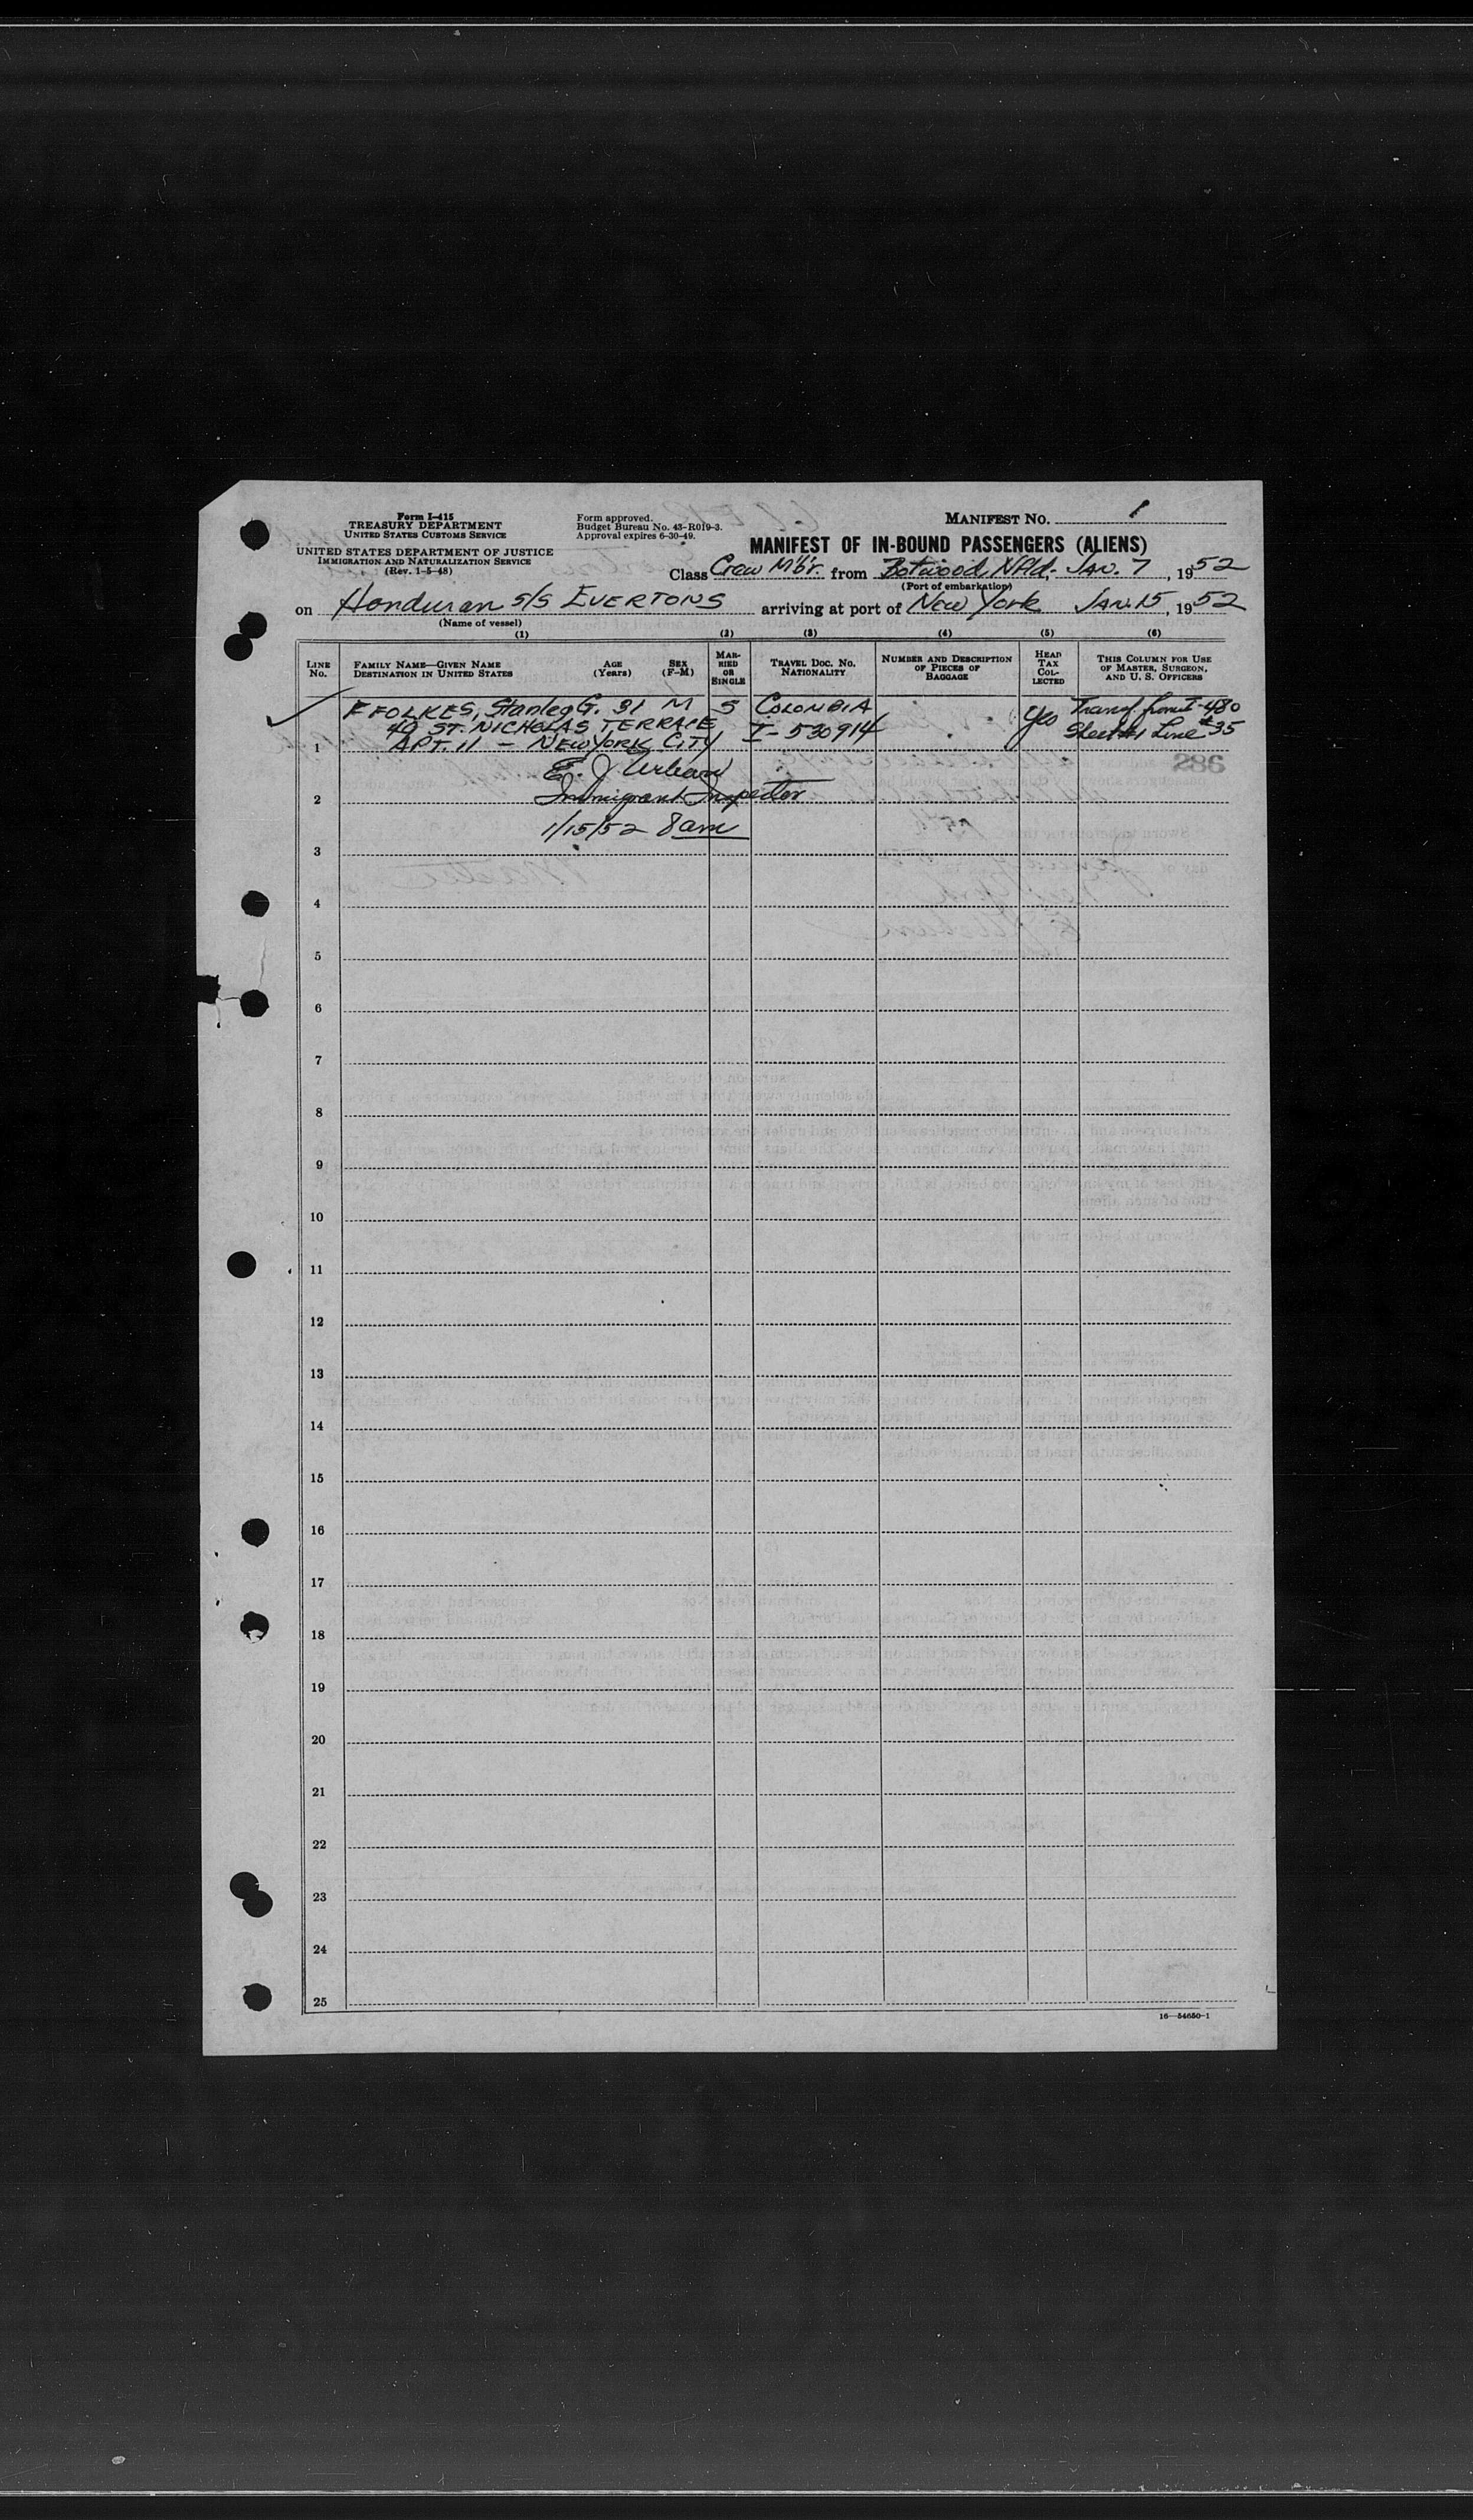 Form I-415
TREASURY DEPARTMENT
UNITED STATES CUSTOMS SERVICE
UNITED STATES DEPARTMENT OF JUSTICE
IMMIGRATION AND NATURALIZATION SERVICE
(Rev. 1-5-48)
Form approved.
Budget Bureau No. 43-R019-3.
Approval expires 6-30-49.
MANIFEST NO. 1
MANIFEST OF IN-BOUND PASSENGERS (ALIENS)
Class Crew Mb'r. from Botwood, Nfld, Jan. 7, 1952
(Port of embarkation)
on Honduran S/S EVERTONS arriving at port of New York Jan. 15, 1952
(Name of vessel)
(1) (2) (3) (4) (5) (6)
LINE NO.
FAMILY NAME—GIVEN NAME
DESTINATION IN UNITED STATES
AGE (Years)
SEX (F-M)
MARRIED OR SINGLE
TRAVEL DOC. NO.
NATIONALITY
NUMBER AND DESCRIPTION OF PIECES OF BAGGAGE
HEAD TAX COLLECTED
THIS COLUMN FOR USE OF MASTER, SURGEON, AND U. S. OFFICERS
FFOLKES, Stanley G. 31 M S COLOMBIA Yes Transf from I-480
49 ST. NICHOLAS TERRACE I-530914 Sheet #1 Line #35
1 APT. 11 - NEW YORK CITY
E. J. Urban
2 Immigrant Inspector
1/15/52 8 am
3
4
5
6
7
8
9
10
11
12
13
14
15
16
17
18
19
20
21
22
23
24
25
16—54650-1